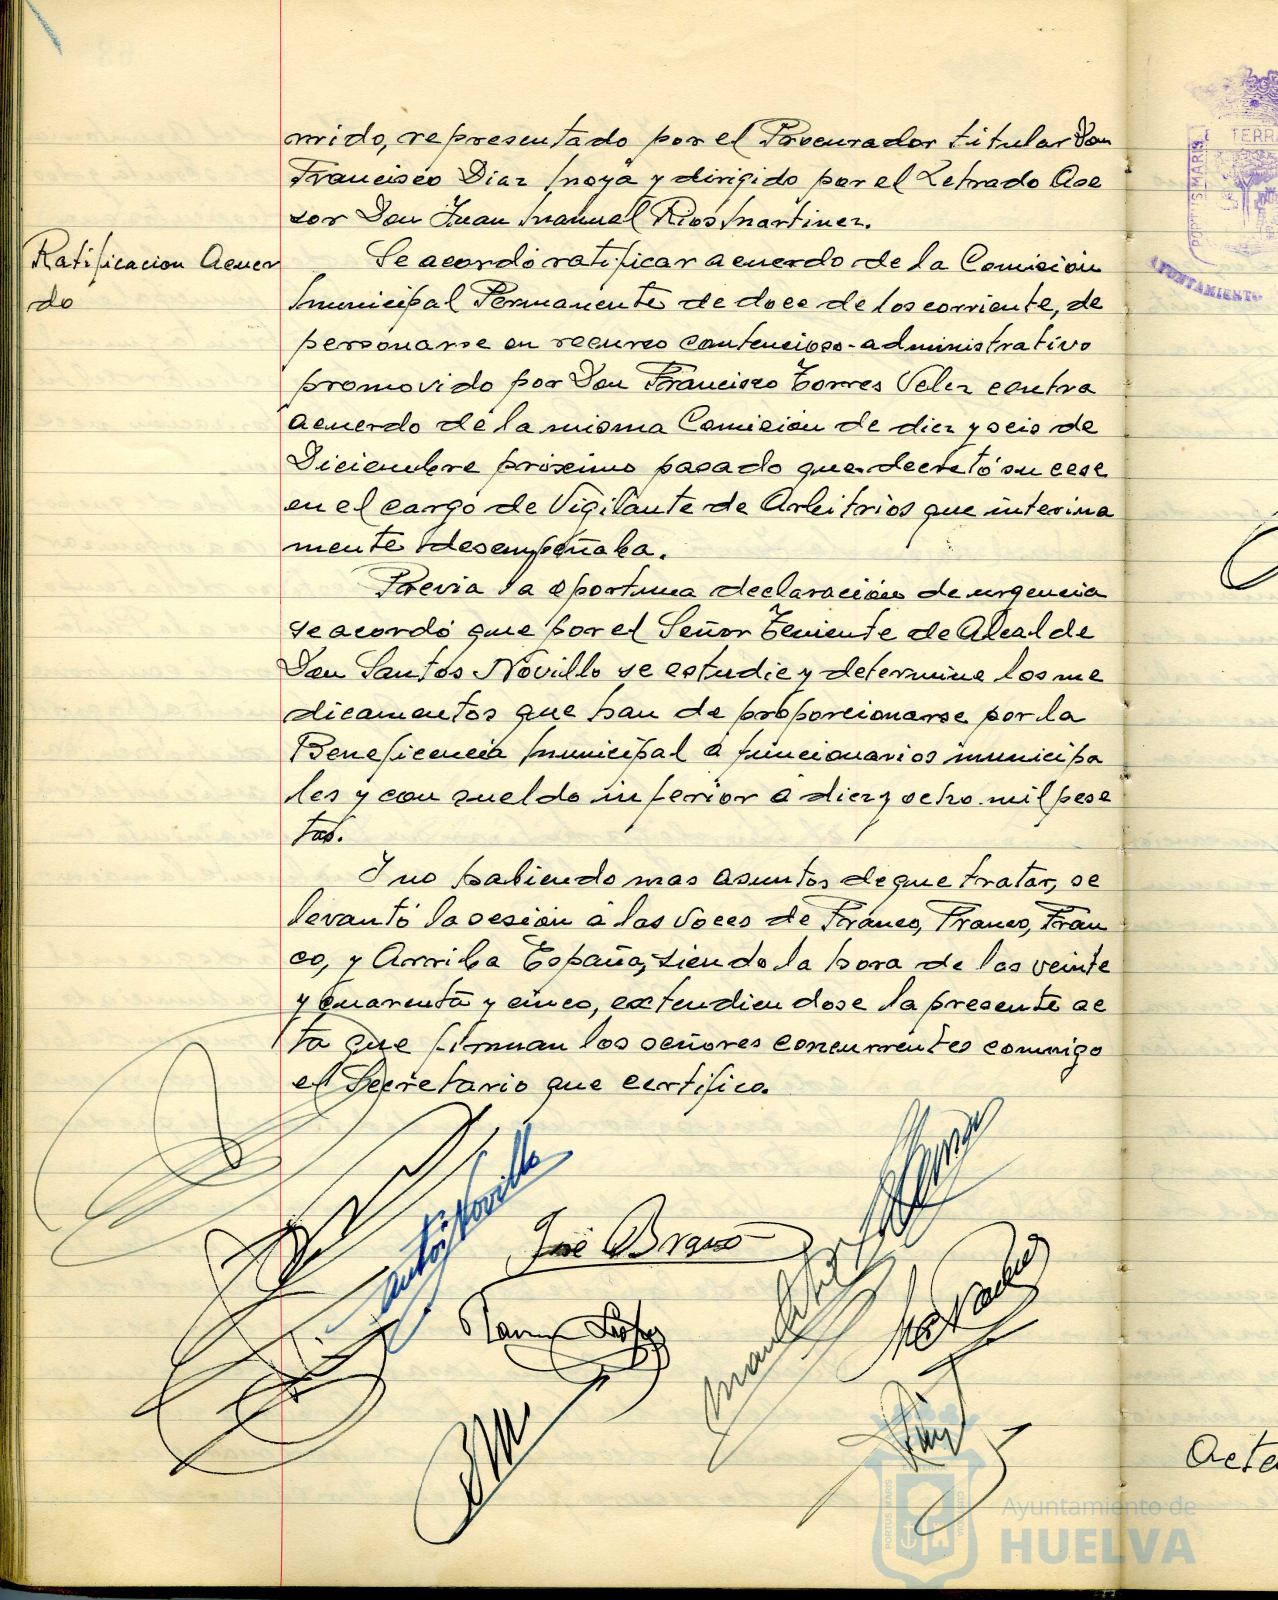 mido, representado por el Procurador titular Don
Francisco Diaz Moya y dirigido por el Letrado Ase
sor Don Juan Manuel Rios Martinez.
Ratificacion Acuer
do
Se acordó ratificar acuerdo de la Comisión
Municipal Permanente de doce de los corriente, de
personarse en recurso contencioso-administrativo
promovido por Don Francisco Torres Velez contra
acuerdo de la misma Comisión de diez y seis de
Diciembre próximo pasado que decretó su cese
en el cargo de Vigilante de Arbitrios que interina
mente desempeñaba.
Previa la oportuna declaración de urgencia
se acordó que por el Señor Teniente de Alcalde
Don Santos Novillo se estudie y determine los me
dicamentos que han de proporcionarse por la
Beneficencia Municipal a funcionarios municipa
les y con sueldo inferior a diez y ocho mil pese
tas.
Y no habiendo mas asuntos de que tratar, se
levantó la sesión a las voces de Franco, Franco, Fran
co, y Arriba España, siendo la hora de las veinte
y cuarenta y cinco, extendiendose la presente ac
ta que firman los señores concurrentes conmigo
el Secretario que certifico.
Santos Novillo
José Bravo
Lopez
PORTUS MARIS
TERR
AYUNTAMIENTO
Acta
PORTUS MARIS
Ayuntamiento de
HUELVA